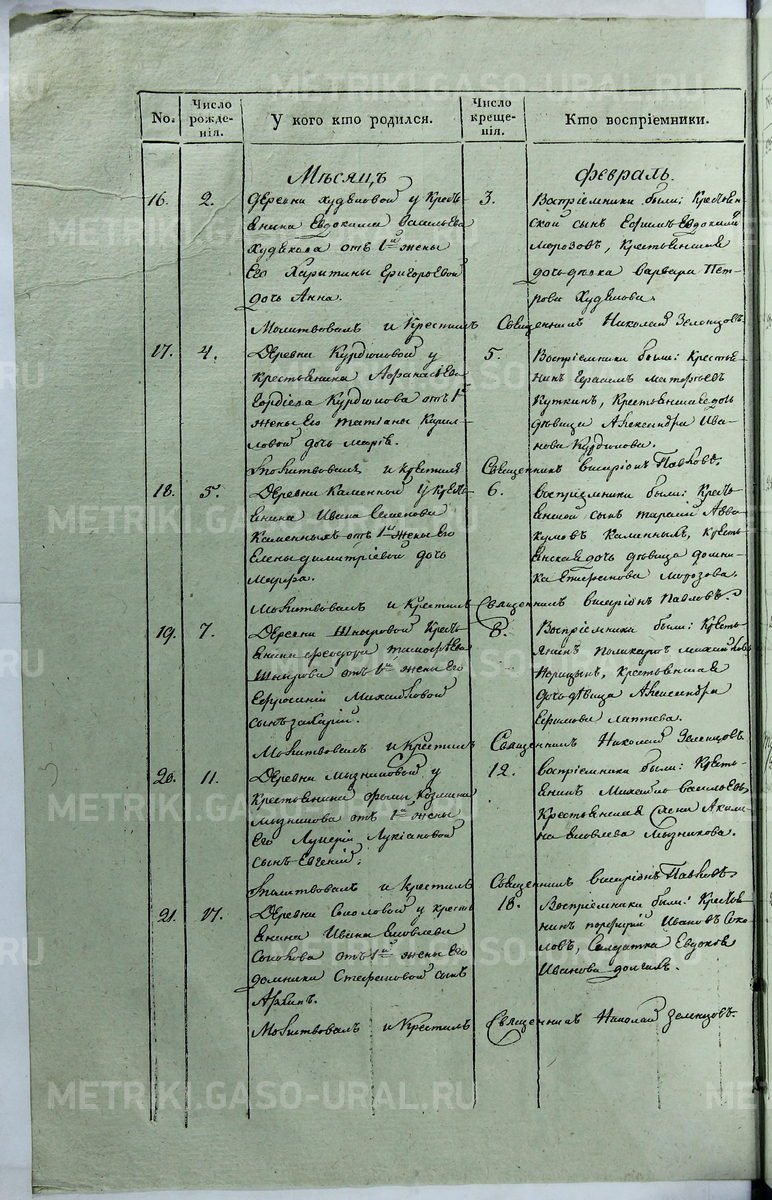 No. Число рожде-нія. У кого кто родился. Число креще-нія. Кто воспріемники.
Мѣсяцъ Февраль.
16. 2. Деревни Худяковой у Кресть-
янина Евдокима Васильева
Худякова отъ 1й жены
Его Харитины Григорьевой
дочь Анна.
3. Воспріемники были: Крестьян-
ской сынъ Ефимъ Евдокимовъ
Морозовъ, Крестьянская
дочь дѣвка Варвара Пет-
рова Худякова.
Молитвовалъ и Крестилъ Священникъ Николай Зеленцовъ.
17. 4. Деревни Курдюковой у
Крестьянина Афанасья
Курдюкова отъ 1й
жены Его Татіаны Кирил-
ловой дочь Марія.
5. Воспріемники были: Крестья-
нинъ Герасимъ Матфѣевъ
Куткинъ, Крестьянская дочь
дѣвица Александра Ива-
нова Курдюкова.
Молитвовалъ и крестилъ Священникъ Виссаріонъ Павловъ.
18. 5. Деревни Каменной у Крест-
янина Ивана Семенова
Каменныхъ отъ 1й жены Его
Елены Димитріевой дочь
Марфа.
6. Воспріемники были: Кресть-
янской сынъ Тарасій Авва-
кумовъ Каменныхъ, Кресть-
янская дочь дѣвица Домни-
ка Морозова.
Молитвовалъ и Крестилъ Священникъ Виссаріонъ Павловъ.
19. 7. Деревни Шныровой Кресть-
янина Феодора Тимофѣева
Шнырова отъ 1й жены Его
Ефросиніи Михайловой
сынъ Захарій.
8. Воспріемники были: Кресть-
янинъ Поликарпъ Михайловъ
Норицынъ, Крестьянская
дочь дѣвица Александра
Ефимова Лаптева.
Молитвовалъ и Крестилъ Священникъ Николай Зеленцовъ
20. 11. Деревни Мызниковой у
Крестьянина Фомы Козмина
Мызникова отъ 1й жены
Его Лукіановой
сынъ Евгеній.
12. Воспріемники были: Кресть-
янинъ Михайло Васильевъ,
Крестьянская жена Акили-
на Яковлева Мызникова.
Молитвовалъ и Крестилъ Священникъ Виссаріонъ Павловъ
21. 17. Деревни Соколовой у кресть-
янина Ивана Яковлева
Соколова отъ 1й жены Его
Домники Стефановой сынъ
Архипъ.
18. Воспріемники были: Крестья-
нинъ Порфирій Ивановъ Соко-
ловъ, Солдатка Евдокія
Иванова
Молитвовалъ и Крестилъ Священникъ Николай Зеленцовъ.
METRIKI.GASO-URAL.RU